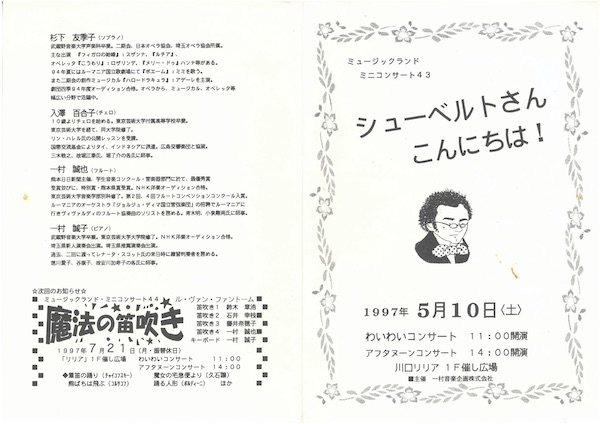 杉下　友季子（ソプラノ）
武蔵野音楽大学声楽科卒業。二期会、日本オペラ協会、埼玉オペラ協会所属。
主な出演　『フィガロの結婚』：スザンナ、『ルチア』、
オペレッタ『こうもり』：ロザリンデ、『メリー・ドゥ』ハンナ等がある。
94年夏にはルーマニア国立歌劇場にて『ボエーム』：ミミを歌う。
また二期会の創作ミュージカル『ハロードラキュラ』：アデーレを主演。
劇団四季94年度オーディション合格。オペラから、ミュージカル、オペレッタ等
幅広い分野で活躍中。
入澤　百合子（チェロ）
10歳よりチェロを始める。東京芸術大学付属高等学校卒業。
東京芸術大学を経て、同大学院修了。
リン・ハレル氏の公開レッスンを受講。
国際交流基金によりタイ、インドネシアに派遣。広島交響楽団と協演。
三木敬之、故堀江泰氏、堀了介の各氏に師事。
一村　誠也（フルート）
熊本日日新聞主催、学生音楽コンクール・管楽器部門に於て、最優秀賞
受賞並びに、特別賞・熊本県賞受賞。NHK洋楽オーディション合格。
東京芸術大学音楽学部別科修了。第2回、4回フルートコンベンションコンクール入賞。
ルーマニアのオーケストラ「ジョルジュ・ディマ国立管弦楽団」の招聘でルーマニアに
行きヴィヴァルディのフルート協奏曲のソリストを務める。
一村　誠子（ピアノ）
武蔵野音楽大学卒業。東京芸術大学大学院修了。NHK洋楽オーディション合格。
埼玉県新人演奏会出演。埼玉県推薦演奏会出演。
過去、二回に渡ってレナータ・スコット氏の来日時に練習判奏者を務める。
徳川愛子、谷康子、故安川加寿子の各氏に師事。
☆次回のお知らせ☆
ミュージックランド・ミニコンサート44　ル・ヴァン・ファントーム
魔法の笛吹き
笛吹き1　鈴木　章浩
笛吹き2　石井　幸枝
笛吹き3　藤井奈穂子
笛吹き4　一村　誠也
キーボード　一村　誠子
1997年7月21日（月・振替休日）
『リリア』1F催し広場　わいわいコンサート　11:00
アフタヌーンコンサート　14:00
◆葦笛の踊り（チャイコフスキー）　魔女の宅急便より（久石譲）
熊ばちは飛ぶ（コルサコフ）　踊る人形（ポルディーニ）　ほか
ミュージックランド
ミニコンサート43
シューベルトさん
こんにちは！
1997年　5月10日〈土〉
わいわいコンサート　11:00開演
アフタヌーンコンサート　14:00開演
川口リリア　1F催し広場
■主催　一村音楽企画株式会社